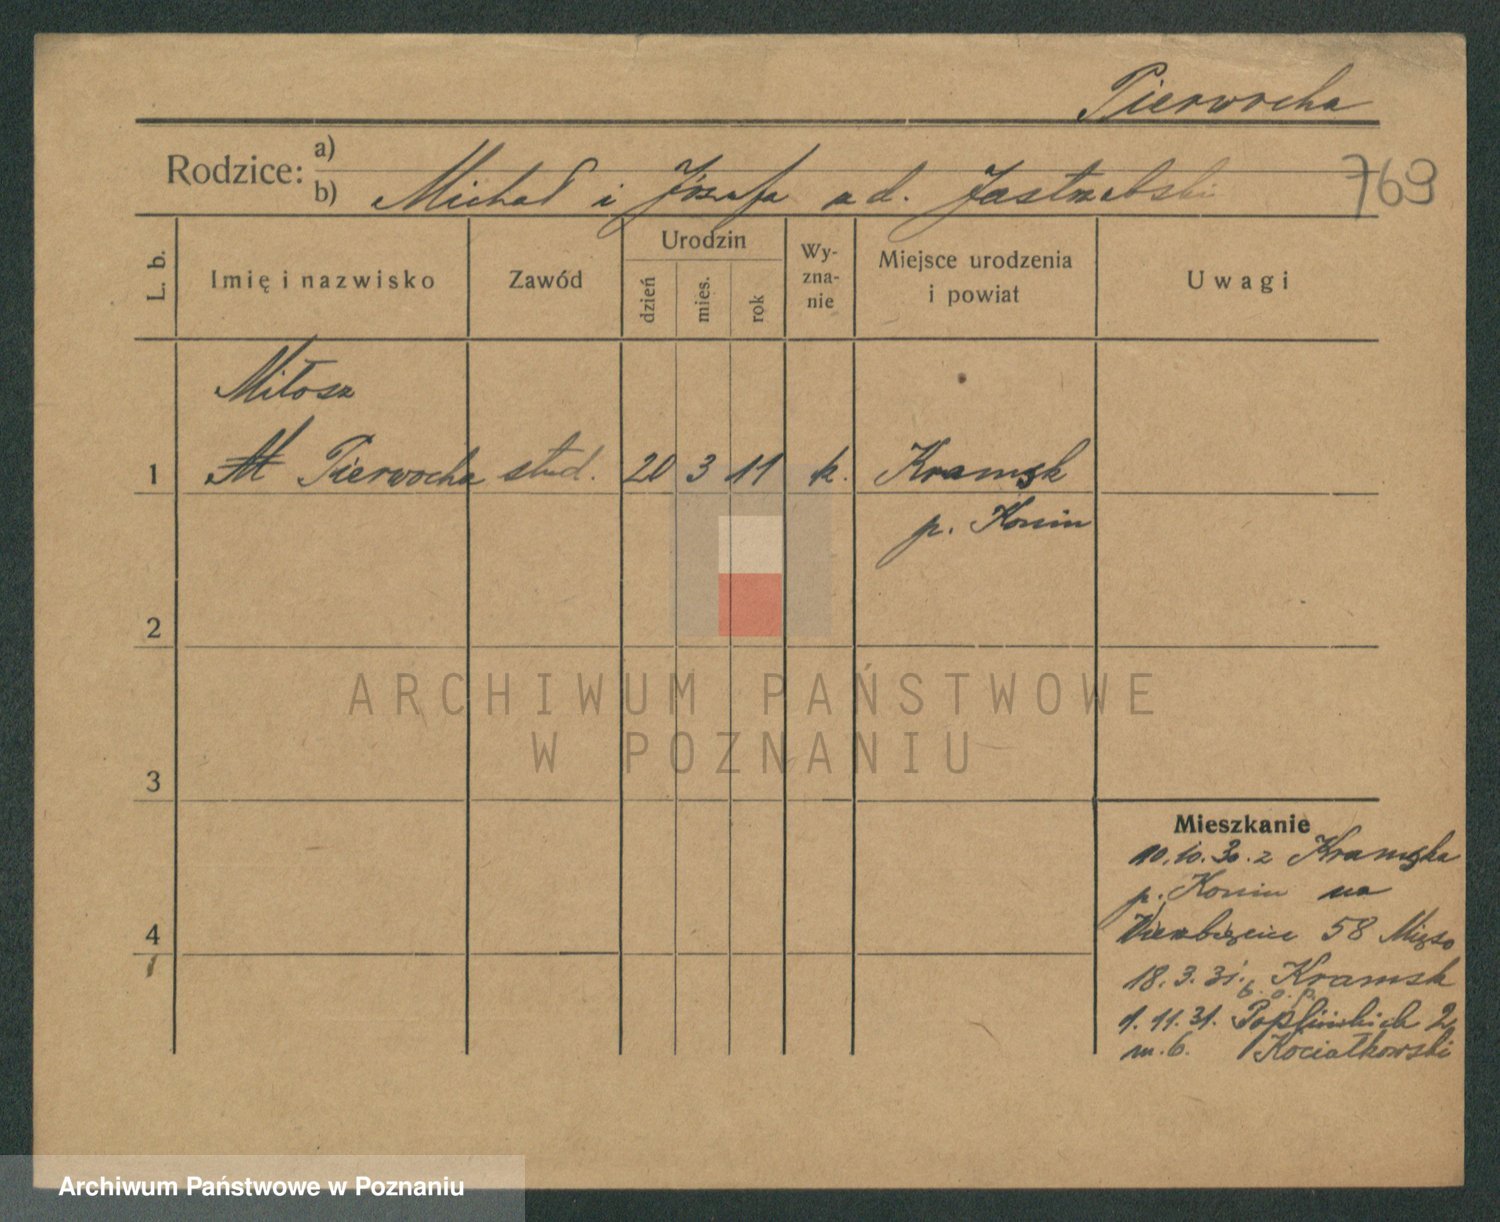 Pierwocha
769
Rodzice:
a)
b) Michał i Józefa ad. Jastrzebski
L. b.
Imię i nazwisko
Zawód
Urodzin
dzień
mies.
rok
Wy-
zna-
nie
Miejsce urodzenia
i powiat
Uwagi
Miłosz
1 M Pierwocha stud. 20 3 11 k. Kramsk
p. Konin
2
3
4
Mieszkanie
10.10.30. z Kramska
p. Konin na
Wierzbięcice 58
18.3.31. Kramsk
b. o. p.
1.11.31. Poplińskich 2
m. 6. Kociałkowski
ARCHIWUM PAŃSTWOWE
W POZNANIU
Archiwum Państwowe w Poznaniu